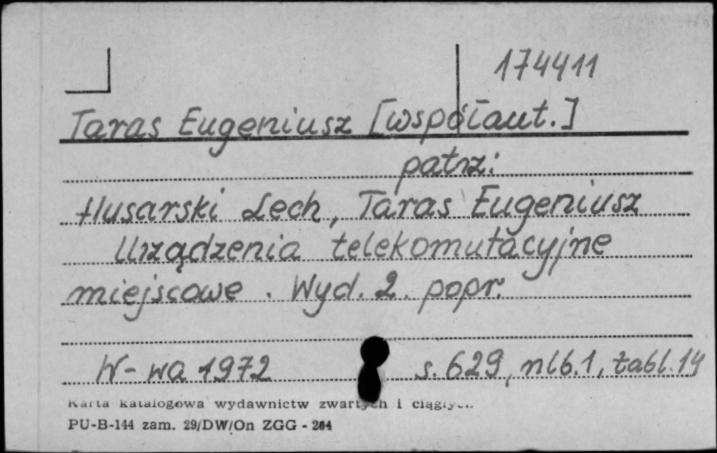 174411
Taras Eugeniusz [współaut.]
patrz:
Husarski Lech, Taras Eugeniusz
Urządzenia telekomutacyjne
miejscowe. Wyd. 2. popr.
W-wa 1972 s. 629, nlb. 1, tabl. 14
Karta katalogowa wydawnictw zwartych i ciągłych
PU-B-144 zam. 29/DW/On ZGG - 264